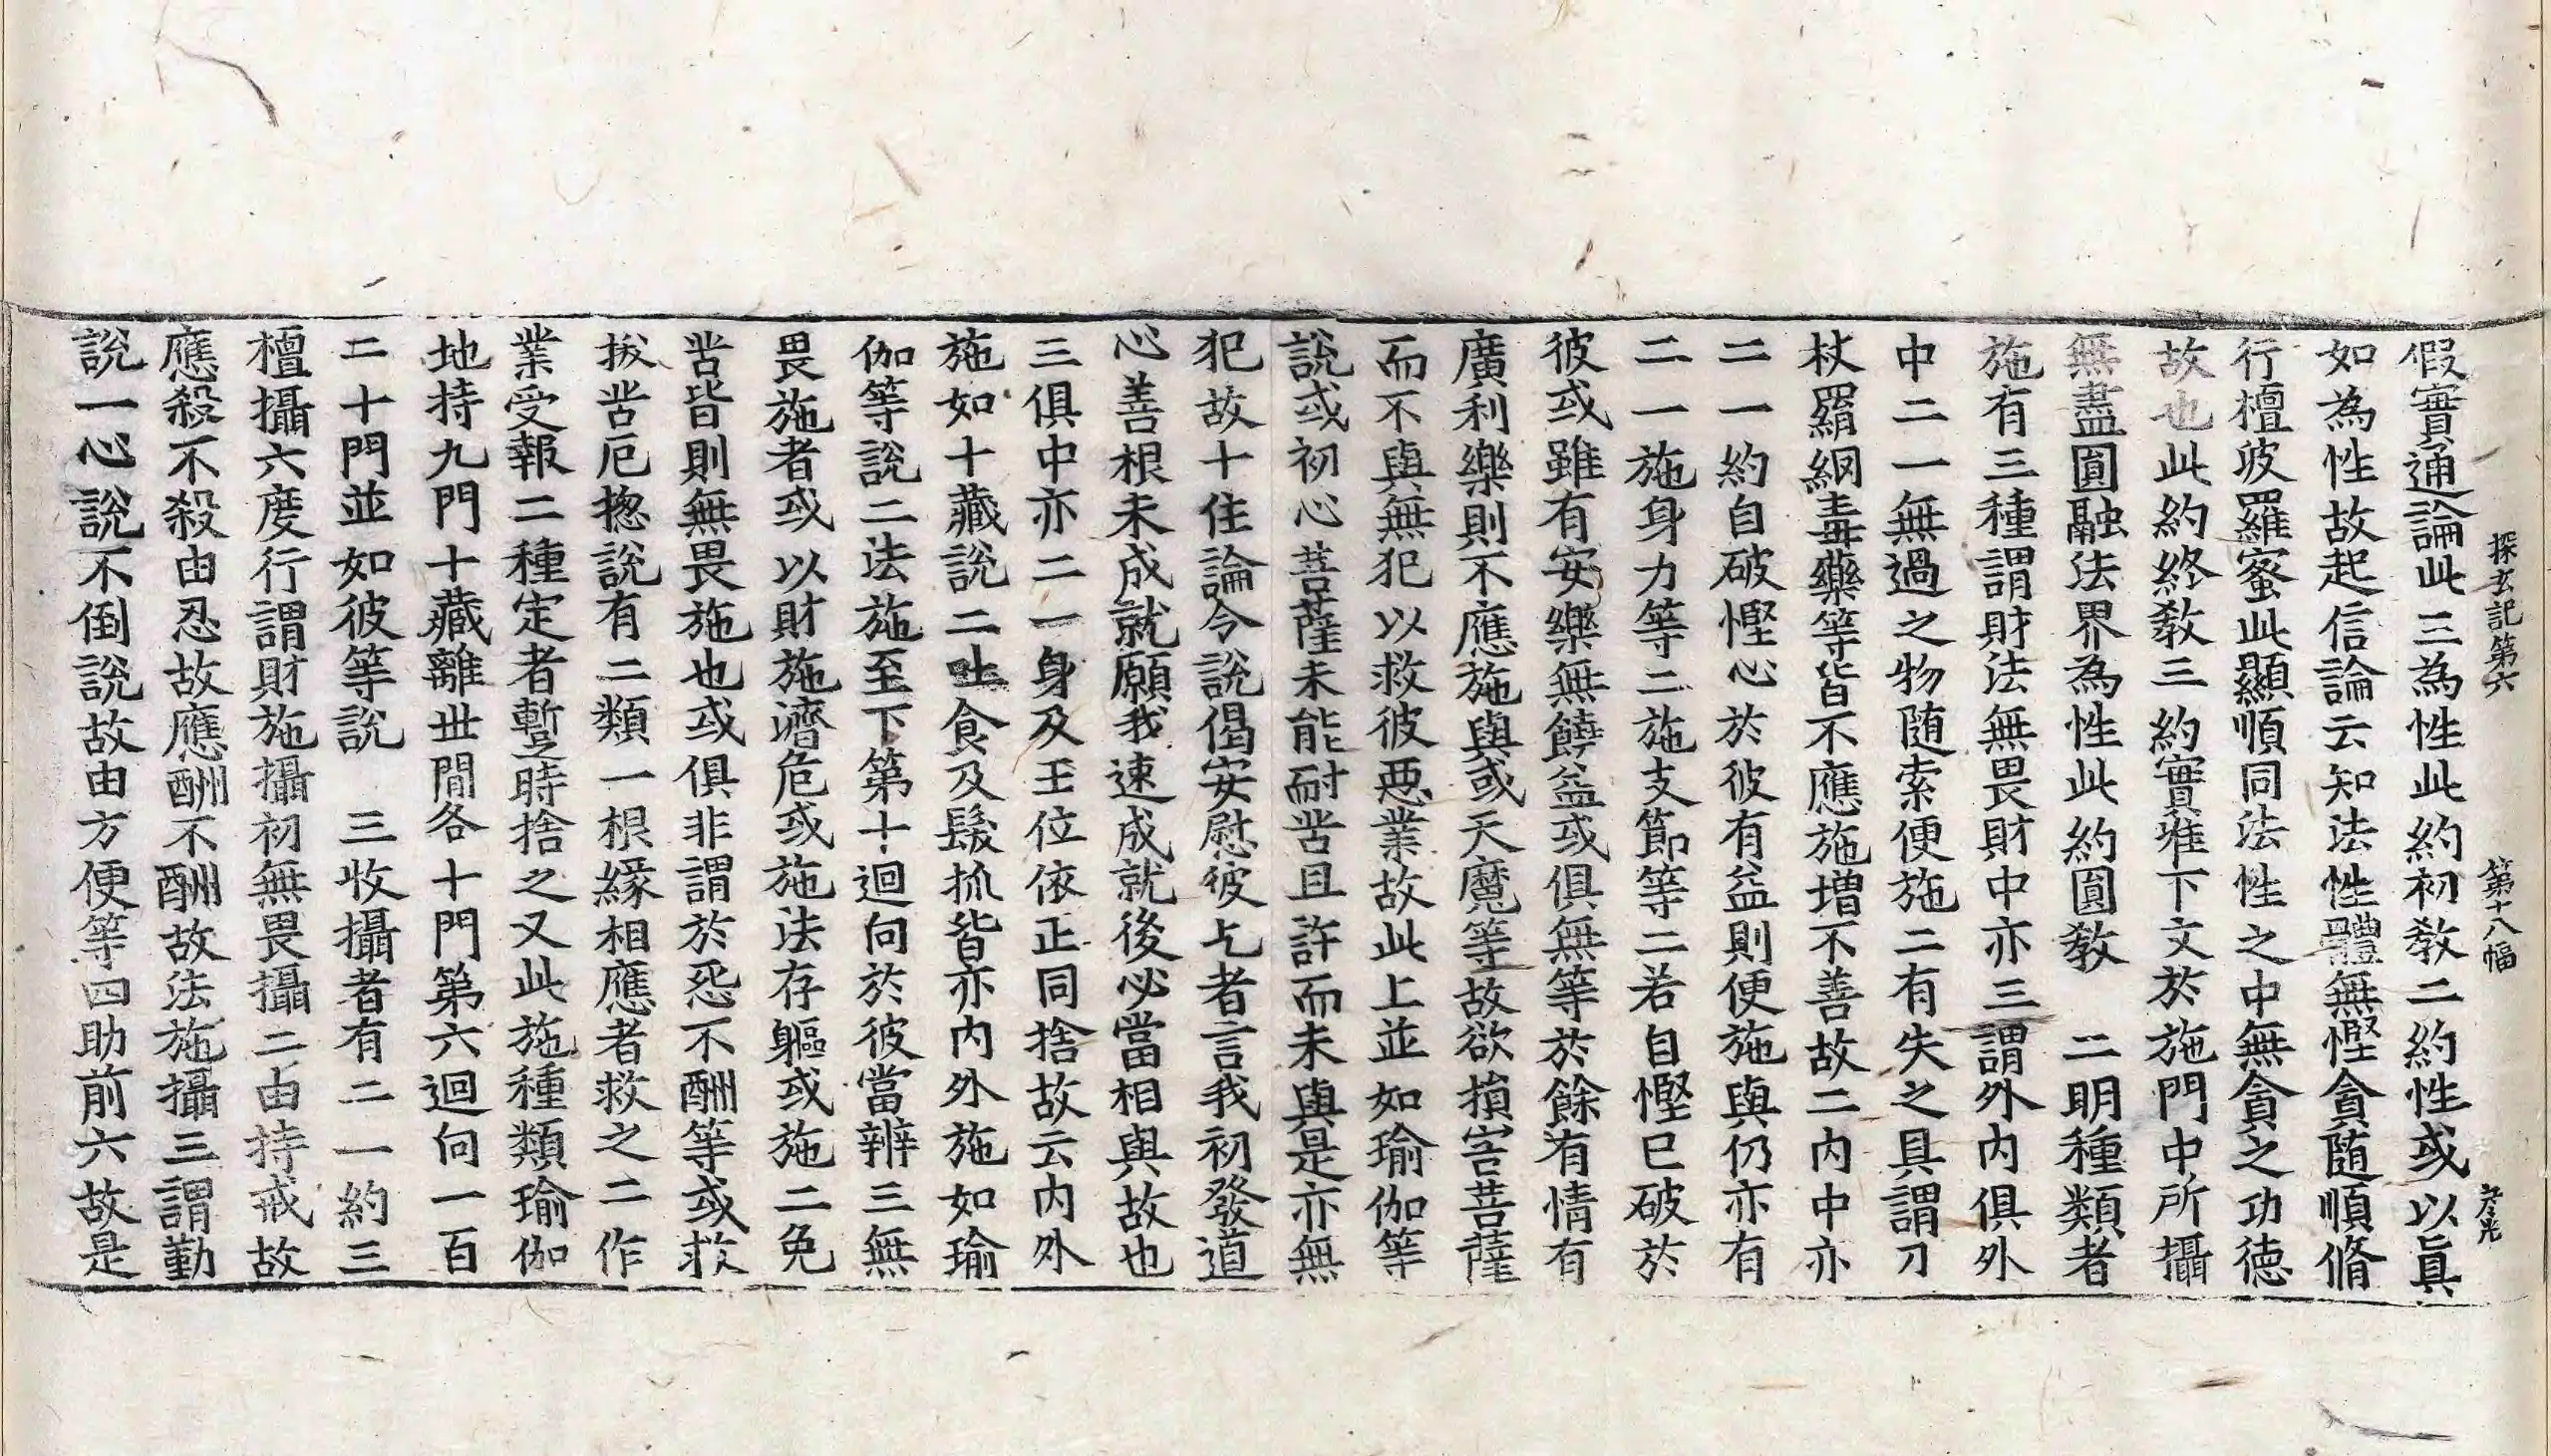 探玄記第六 第十八幅 彦光
假實通論此三為性此約初教二約性或以真
如為性故起信論云知法性體無慳貪随順脩
行檀波羅蜜此顯順同法性之中無貪之功徳
故也此約終教三約實唯下文於施門中所攝
無盡圓融法界為性此約圓教 二明種類者
施有三種謂財法無畏財中亦三謂外内俱外
中二一無過之物随索便施二有失之具謂刀
杖羂網毒藥等皆不應施增不善故二内中亦
二一約自破慳心於彼有益則便施與仍亦有
二一施身力等二施支節等二若自慳已破於
彼或雖有安樂無饒益或俱無等於餘有情有
廣利樂則不應施與或天魔等故欲損害菩薩
而不與無犯以救彼惡業故此上並如瑜伽等
說或初心菩薩未能耐苦且許而未與是亦無
犯故十住論今說偈安慰彼乞者言我初發道
心善根未成就願我速成就後必當相與故也
三俱中亦二一身及王位依正同捨故云内外
施如十藏說二吐食及髮抓皆亦内外施如瑜
伽等說二法施至下第十迴向於彼當辨三無
畏施者或以財施濟危或施法存軀或施二免
苦皆則無畏施也或俱非謂於惡不酬等或救
拔苦厄揔說有二類一根緣相應者救之二作
業受報二種定者暫時捨之又此施種類瑜伽
地持九門十藏離世間各十門第六迴向一百
二十門並如彼等說 三收攝者有二一約三
檀攝六度行謂財施攝初無畏攝二由持戒故
應殺不殺由忍故應酬不酬故法施攝三謂勤
說一心說不倒說故由方便等四助前六故是